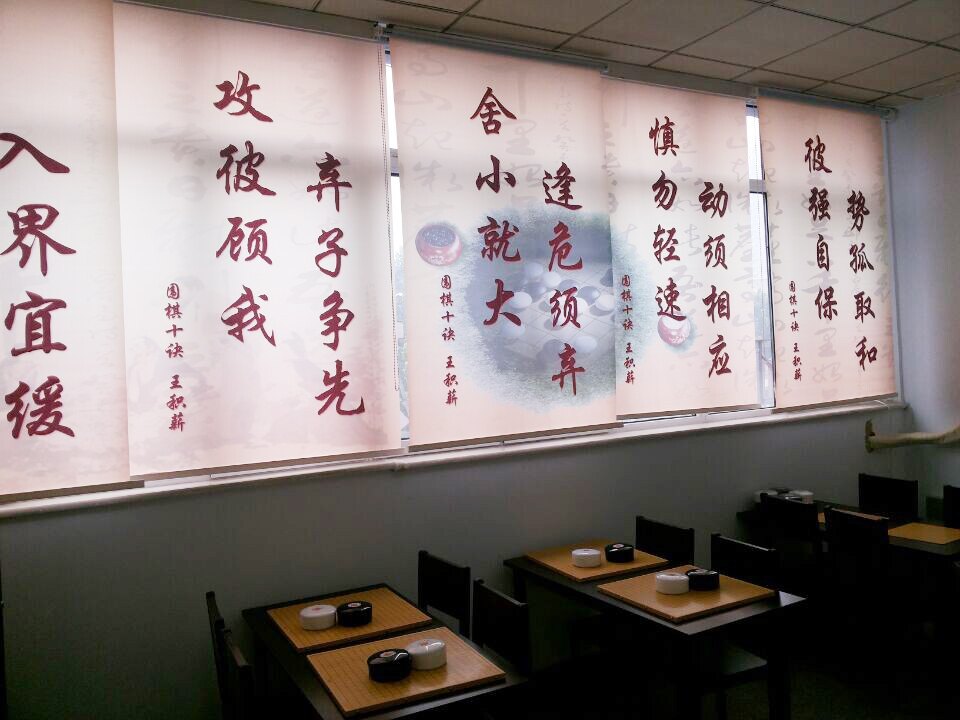 入界宜缓
围棋十诀 王积薪
攻彼顾我
弃子争先
围棋十诀 王积薪
舍小就大
逢危须弃
围棋十诀 王积薪
慎勿轻速
动须相应
围棋十诀 王积薪
彼强自保
势孤取和